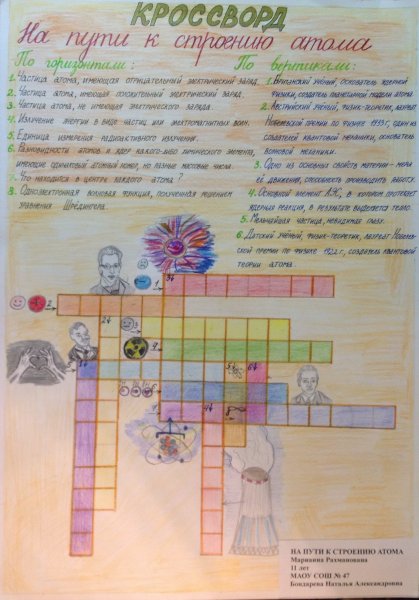 КРОССВОРД
На пути к строению атома
По горизонтали:
1. Частица атома, имеющая отрицательный электрический заряд.
2. Частица атома, имеющая положительный электрический заряд.
3. Частица атома, не имеющая электрического заряда.
4. Излучение энергии в виде частиц или электромагнитных волн.
5. Единица измерения радиоактивного излучения.
6. Разновидности атомов и ядер какого-либо химического элемента,
имеющие одинаковый атомный номер, но разные массовые числа.
7. Что находится в центре каждого атома?
8. Одноэлектронная волновая функция, полученная решением
уравнения Шредингера.
По вертикали:
1. Британский ученый, основатель ядерной
физики, создатель планетарной модели атома.
2. Австрийский ученый, физик-теоретик, лауреат
Нобелевской премии по физике 1933 г., один из
создателей квантовой механики, основатель
волновой механики.
3. Одно из основных свойств материи - мера
её движения, способность производить работу.
4. Основной элемент АЭС, в котором протекает
ядерная реакция, в результате выделяется тепло.
5. Мельчайшая частица, невидимая глазу.
6. Датский учёный, физик-теоретик, лауреат Нобелев-
ской премии по физике 1922 г., создатель квантовой
теории атома.
НА ПУТИ К СТРОЕНИЮ АТОМА
Марианна Рахманова
11 лет
МАОУ СОШ № 47
Бондарева Наталья Александровна